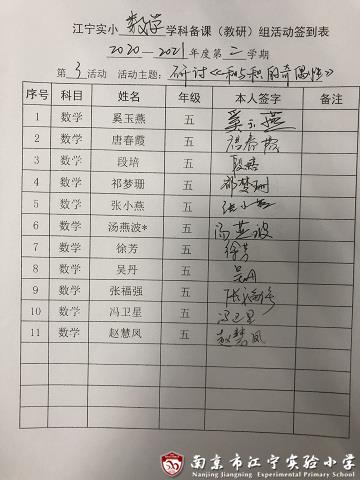 江宁实小 数学 学科备课（教研）组活动签到表
2020—2021年度第二学期
第 3 活动 活动主题：研讨《和与积的奇偶性》
序号 科目 姓名 年级 本人签字 备注
1 数学 奚玉燕 五 奚玉燕
2 数学 唐春霞 五 唐春霞
3 数学 段培 五 段培
4 数学 祁梦珊 五 祁梦珊
5 数学 张小燕 五 张小燕
6 数学 汤燕波* 五 汤燕波
7 数学 徐芳 五 徐芳
8 数学 吴丹 五 吴丹
9 数学 张福强 五 张福强
10 数学 冯卫星 五 冯卫星
11 数学 赵慧凤 五 赵慧凤
南京市江宁实验小学
Nanjing Jiangning Experimental Primary School